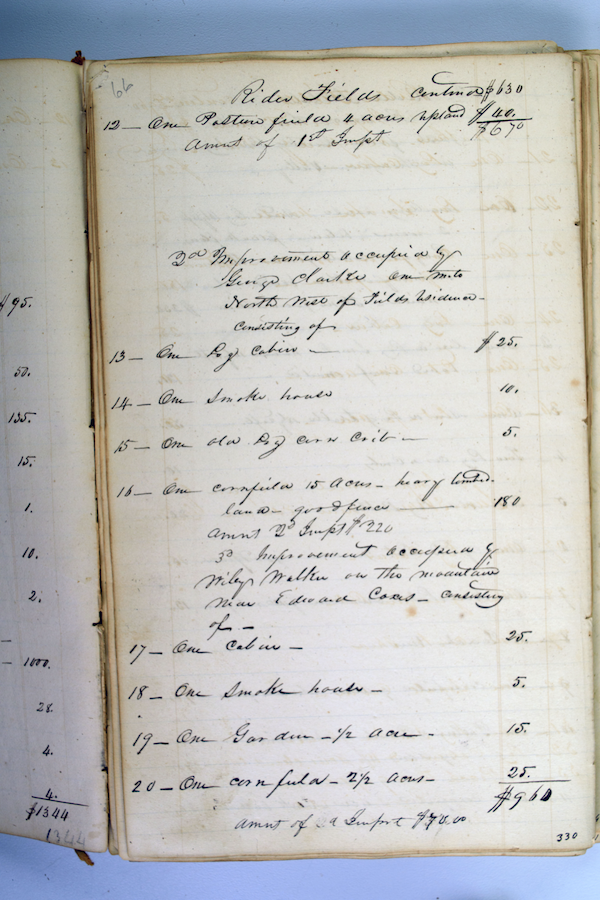 $95.
50.
135.
15.
1.
10.
2.
1000.
28.
4.
4.
$1344
1344
66
Rider Fields continued $630
12 — One Pasture field 4 acres upland $40.
Amnt of 1st Impt $670
2d Improvement occupied by
George Clarke one mile
North West of Fields residence —
consisting of
13 — One Log Cabin — $25.
14 — One Smoke house 10.
15 — One old Log corn Crib — 5.
16 — One cornfield 15 acres — heavy timbd.
land — good fence — 180
Amnt 2d Impt $220
3d Improvement occupied by
Wiley Walker on the mountain
near Edward Coxes — consisting
of —
17 — One Cabin — 25.
18 — One Smoke house — 5.
19 — One Garden — 1/2 acre — 15.
20 — One cornfield — 2 1/2 acres — 25.
$960
Amnt of Impt $70.00
330